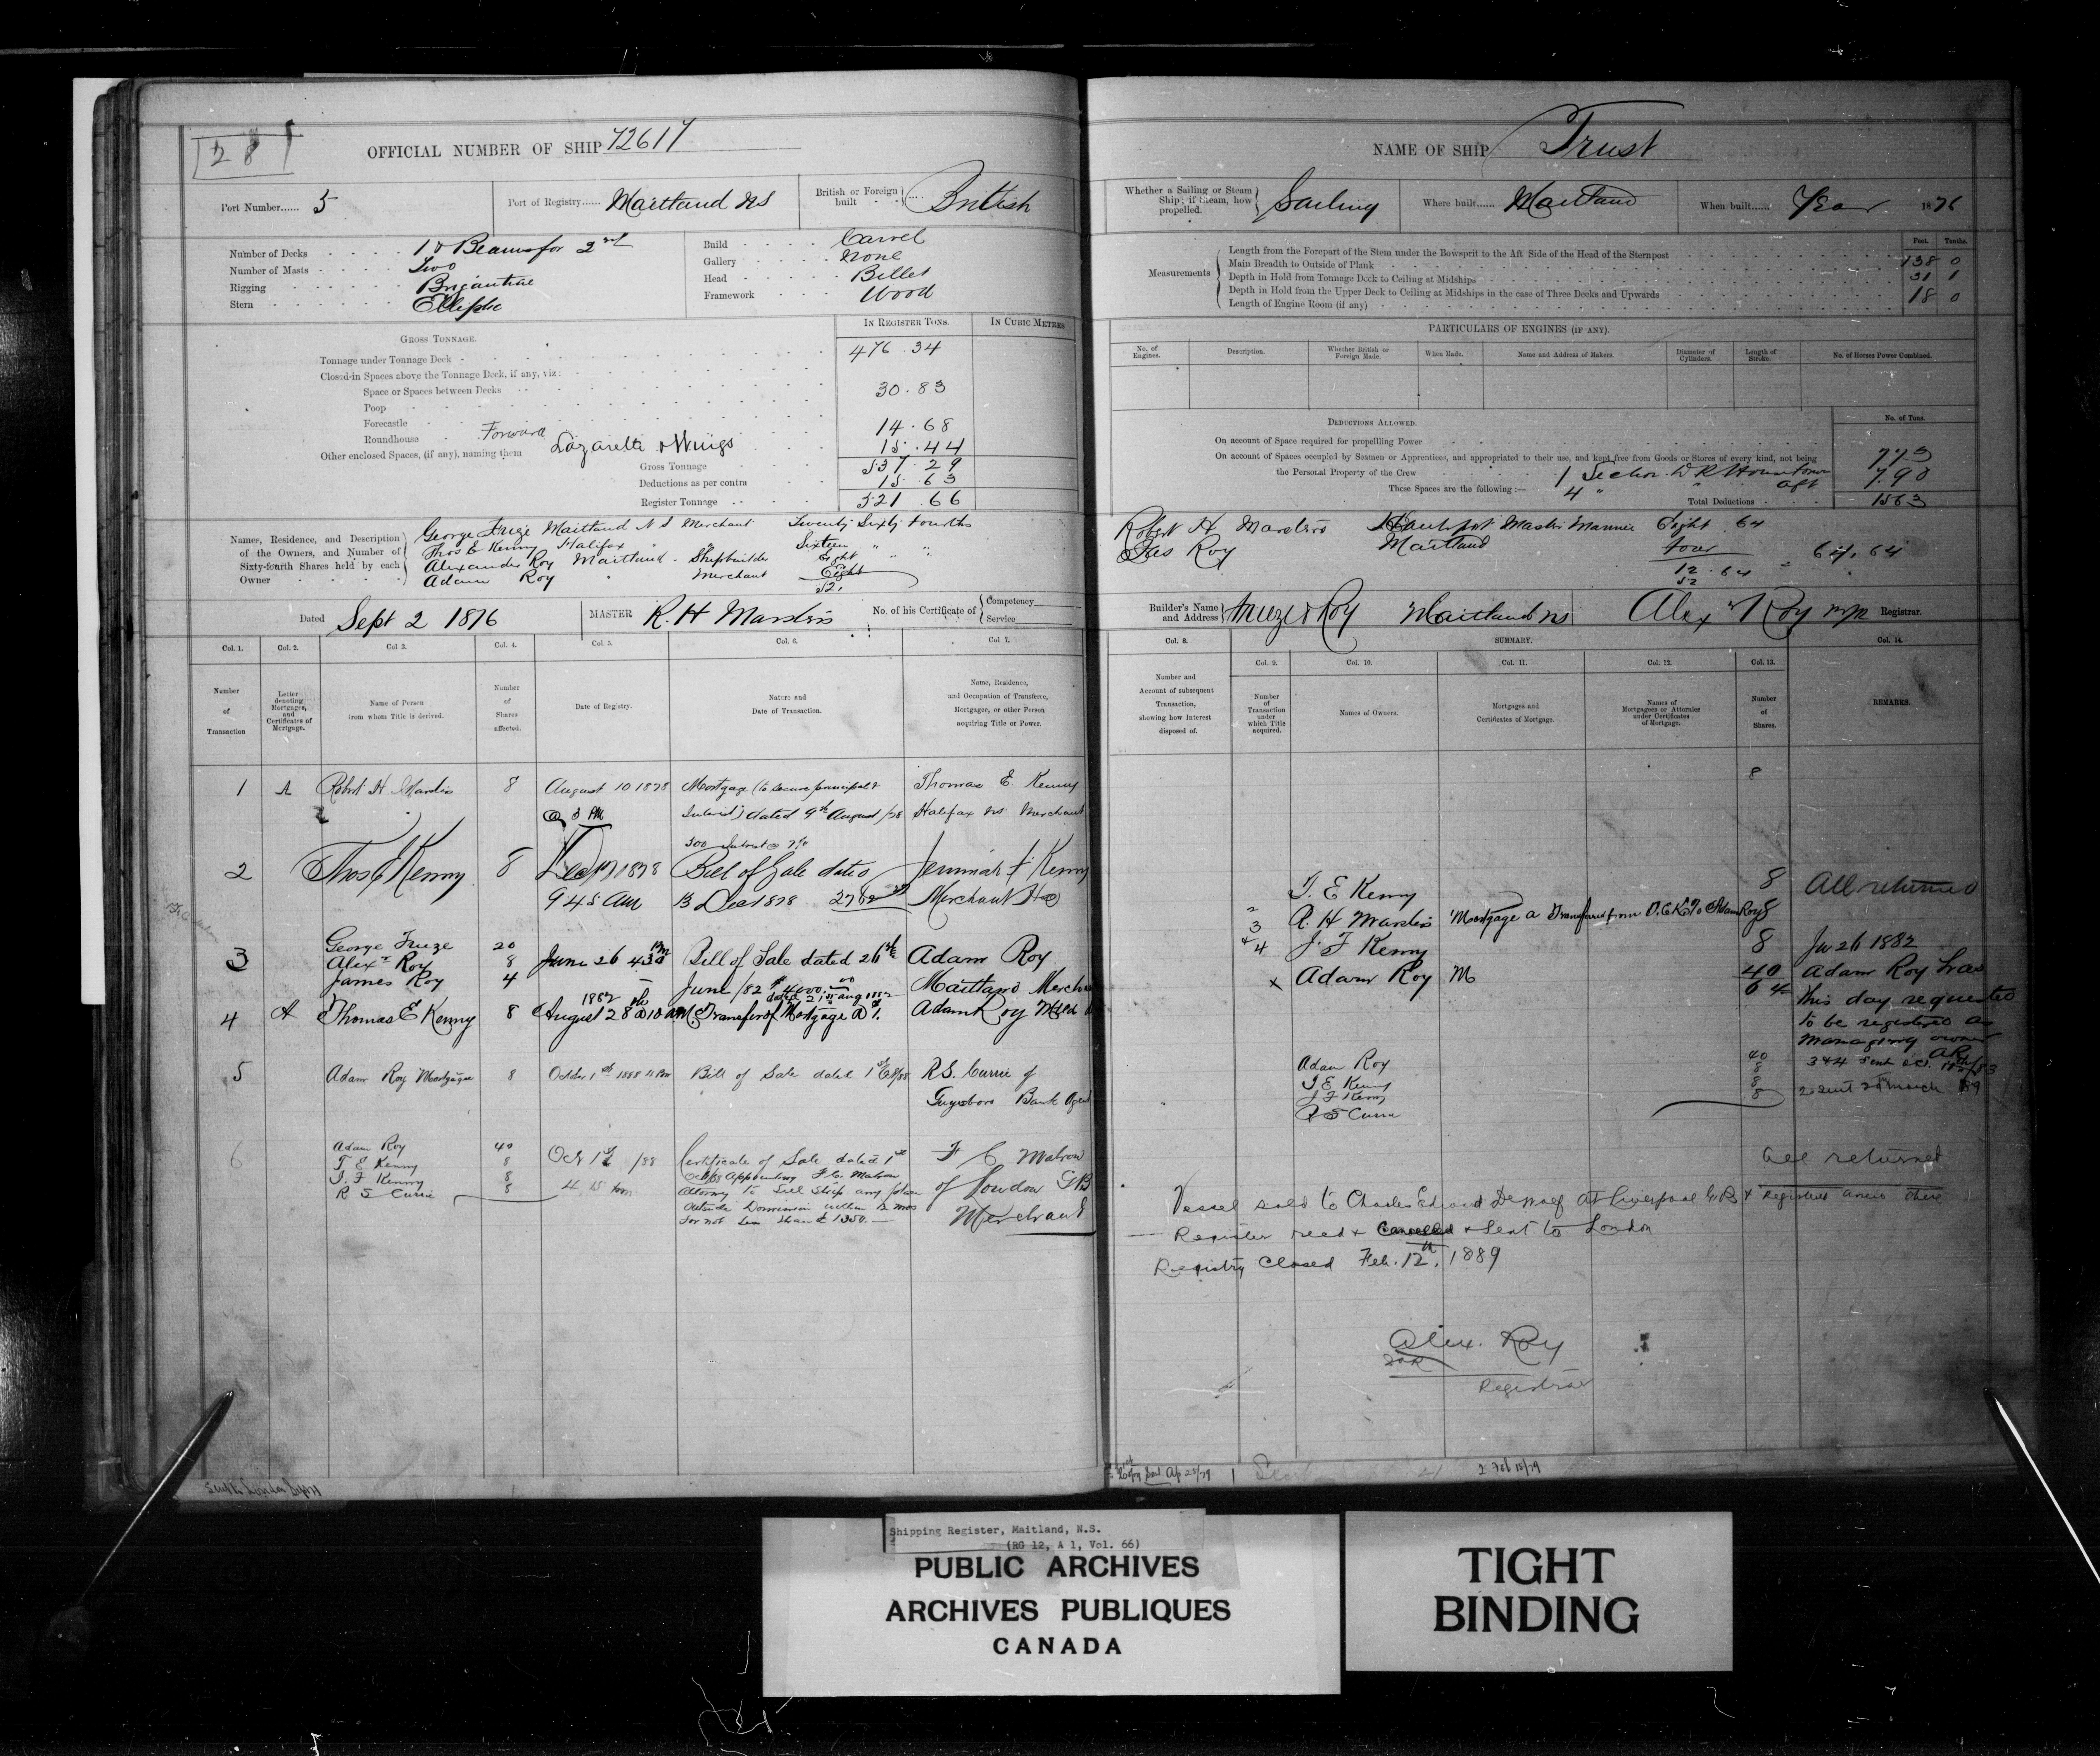 28
OFFICIAL NUMBER OF SHIP 72617
Port Number...... 5
Port of Registry...... Maitland NS
British or Foreign built British
Number of Decks 1 & Beams for 2nd
Number of Masts Two
Rigging Brigantine
Stern Elliptic
Build Carvel
Gallery None
Head Billet
Framework Wood
GROSS TONNAGE.
IN REGISTER TONS.
IN CUBIC METRES
Tonnage under Tonnage Deck 476.34
Closed-in Spaces above the Tonnage Deck, if any, viz:
Space or Spaces between Decks 30.83
Poop
Forecastle 14.68
Roundhouse Forward
Other enclosed Spaces, (if any), naming them Lazarette & Wings 15.44
Gross Tonnage 537.29
Deductions as per contra 15.63
Register Tonnage 521.66
Names, Residence, and Description of the Owners, and Number of Sixty-fourth Shares held by each Owner
George Frieze Maitland N S Merchant Twenty Sixty fourths
Thos E Kenny Halifax " Sixteen " "
Alexander Roy Maitland - Shipbuilder Eight " "
Adam Roy " Merchant Eight
52
Dated Sept 2 1876
MASTER R. H Marsters
No. of his Certificate of Competency Service
Col. 1. Col. 2. Col 3. Col. 4. Col. 5. Col. 6. Col. 7.
Number of Transaction
Letter denoting Mortgages, and Certificates of Mortgage.
Name of Person from whom Title is derived.
Number of Shares affected.
Date of Registry.
Nature and Date of Transaction.
Name, Residence, and Occupation of Transferee, Mortgagee, or other Person acquiring Title or Power.
1 A Robert H. Marsters 8 August 10 1878 Mortgage (to secure principal & Thomas E. Kenny
@ 3 PM Interest) dated 9th August /78 Halifax NS Merchant
300 Interest @ 7%
2 Thos E Kenny 8 Dec 17 1878 Bill of Sale dated Jeremiah F Kenny
9 45 AM 13 Dec 1878 Merchant
3 George Frieze 20
Alexr Roy 8 June 26 Bill of Sale dated 26th Adam Roy
James Roy 4 1882 June /82 $4000.00 Maitland Merchant
4 A Thomas E Kenny 8 August 28 @ 10 AM Transfer of Mortgage A dated 21st Aug 1882 Adam Roy
5 Adam Roy Mortgagee 8 October 1st 1888 Bill of Sale dated 1st R S. Currie of
Guysboro Bank Agent
6 Adam Roy 40
T E Kenny 8
J. F Kenny 8
R S Currie 8
Oct 1st /88
Certificate of Sale dated 1st
Appointing F C Mahon
Attorny to Sell Ship any place
Outside Dominion within 12 mos
for not less than £1350.—
F C Mahon
of London GB
Merchant
NAME OF SHIP Trust
Whether a Sailing or Steam Ship; if Steam, how propelled. Sailing
Where built...... Maitland
When built...... Year 1876
Measurements
Feet. Tenths.
Length from the Forepart of the Stem under the Bowsprit to the Aft Side of the Head of the Sternpost 138 0
Main Breadth to Outside of Plank 31 1
Depth in Hold from Tonnage Deck to Ceiling at Midships 18 0
Depth in Hold from the Upper Deck to Ceiling at Midships in the case of Three Decks and Upwards
Length of Engine Room (if any)
PARTICULARS OF ENGINES (IF ANY).
No. of Engines.
Description.
Whether British or Foreign Made.
When Made.
Name and Address of Makers.
Diameter of Cylinders.
Length of Stroke.
No. of Horses Power Combined.
DEDUCTIONS ALLOWED.
No. of Tons.
On account of Space required for propelling Power
On account of Spaces occupied by Seamen or Apprentices, and appropriated to their use, and kept free from Goods or Stores of every kind, not being the Personal Property of the Crew 7.73
These Spaces are the following:— 7.90
Total Deductions 15.63
Robert H Marsters Hantsport Master Mariner Eight 64
Jas Roy Maitland four
12.64 = 64.64
52
Builder's Name and Address Frieze & Roy Maitland NS
Alexr Roy Registrar.
Col. 8. SUMMARY. Col. 14.
Col. 9. Col. 10. Col. 11. Col. 12. Col. 13.
Number and Account of subsequent Transaction, showing how Interest disposed of.
Number of Transaction under which Title acquired.
Names of Owners.
Mortgages and Certificates of Mortgage.
Names of Mortgagees or Attornies under Certificates of Mortgage.
Number of Shares.
REMARKS.
8
T. E Kenny 8 All returned
2 3 R. H Marsters Mortgage A Transferred from T. E K to Adam Roy 8
4 J. F Kenny 8 Ju 26 1882
x Adam Roy M 40 Adam Roy has
64 this day requested
to be registered as
managing owner
AR
Adam Roy 40
T E Kenny 8
J F Kenny 8
R S Currie 8
All returned
Vessel sold to Charles Edward at Liverpool G.B & Registered anew there
Register recd & Cancelled & Sent to London
Registry Closed Feb. 12th, 1889
Alex. Roy
Registrar
Shipping Register, Maitland, N.S.
(RG 12, A 1, Vol. 66)
PUBLIC ARCHIVES
ARCHIVES PUBLIQUES
CANADA
TIGHT
BINDING